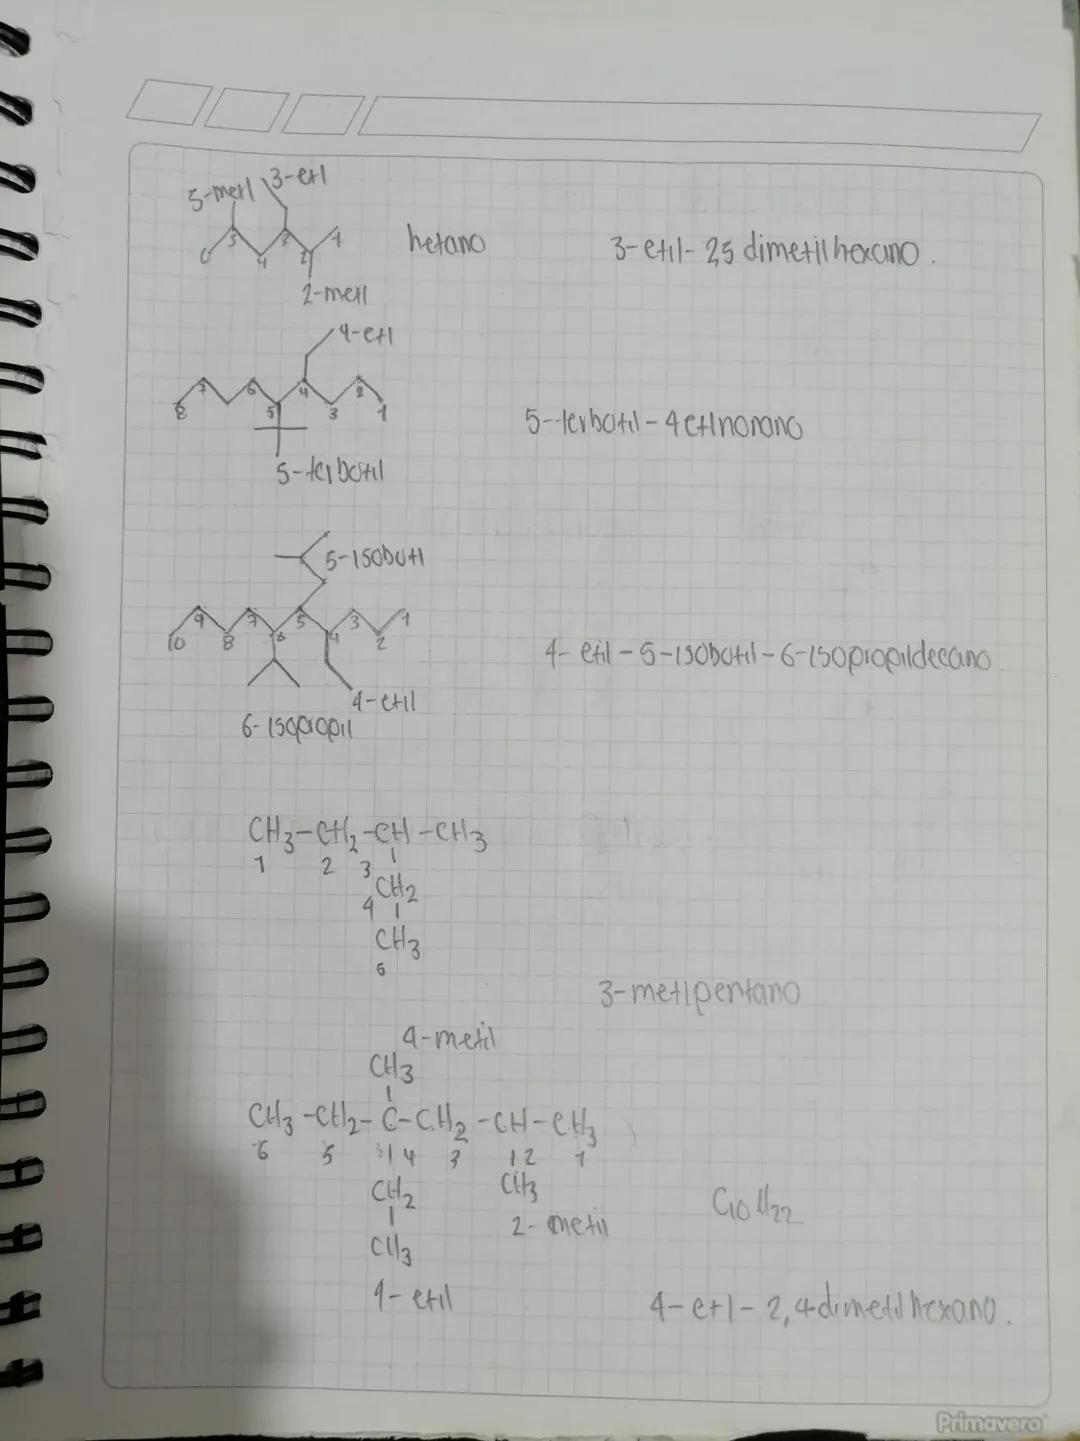 5-metl 3-etl
5 3 1
6 4 2
hetano
3-etil-25 dimetilhexano.
2-metl
4-etl
7 6 4 2
8 5 3 1
5-terbotil-4etlnonano
5-terbotil
5-isobutl
9 7 5 3 1
10 8 6 4 2
4-etil-5-isobotil-6-isopropildecano
4-etil
6-isopropil
CH3-CH2-CH-CH3
1 2 3
CH2
4
CH3
5
3-metlpentano
4-metil
CH3
CH3-CH2-C-CH2-CH-CH3
6 5 4 3 2 1
CH2 CH3
C10H22
2-metil
CH3
4-etil
4-etl-2,4dimetilhexano.
Primavera